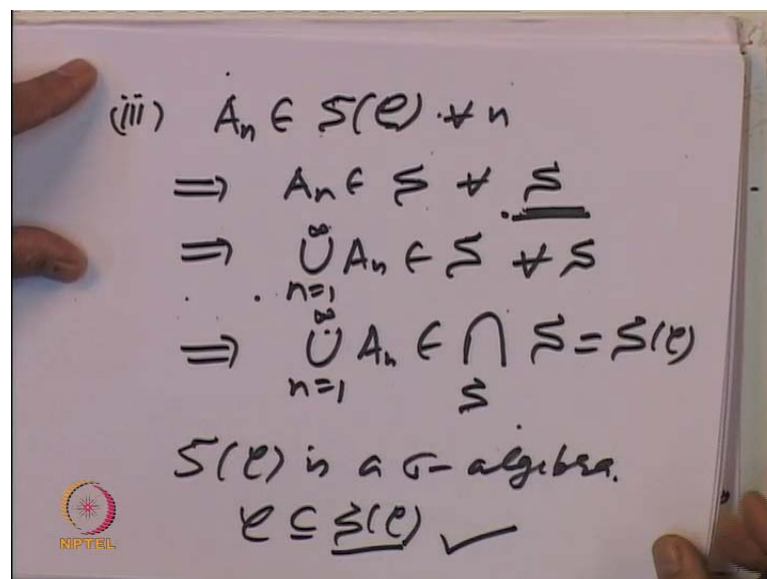 (iii) Aₙ ∈ S(𝒞) ∀ n
⟹ Aₙ ∈ S ∀ S
⟹ ∞⋃n=1 Aₙ ∈ S ∀ S
⟹ ∞⋃n=1 Aₙ ∈ ⋂S S = S(𝒞)
S(𝒞) is a σ-algebra.
𝒞 ⊆ S(𝒞) ✓
NPTEL